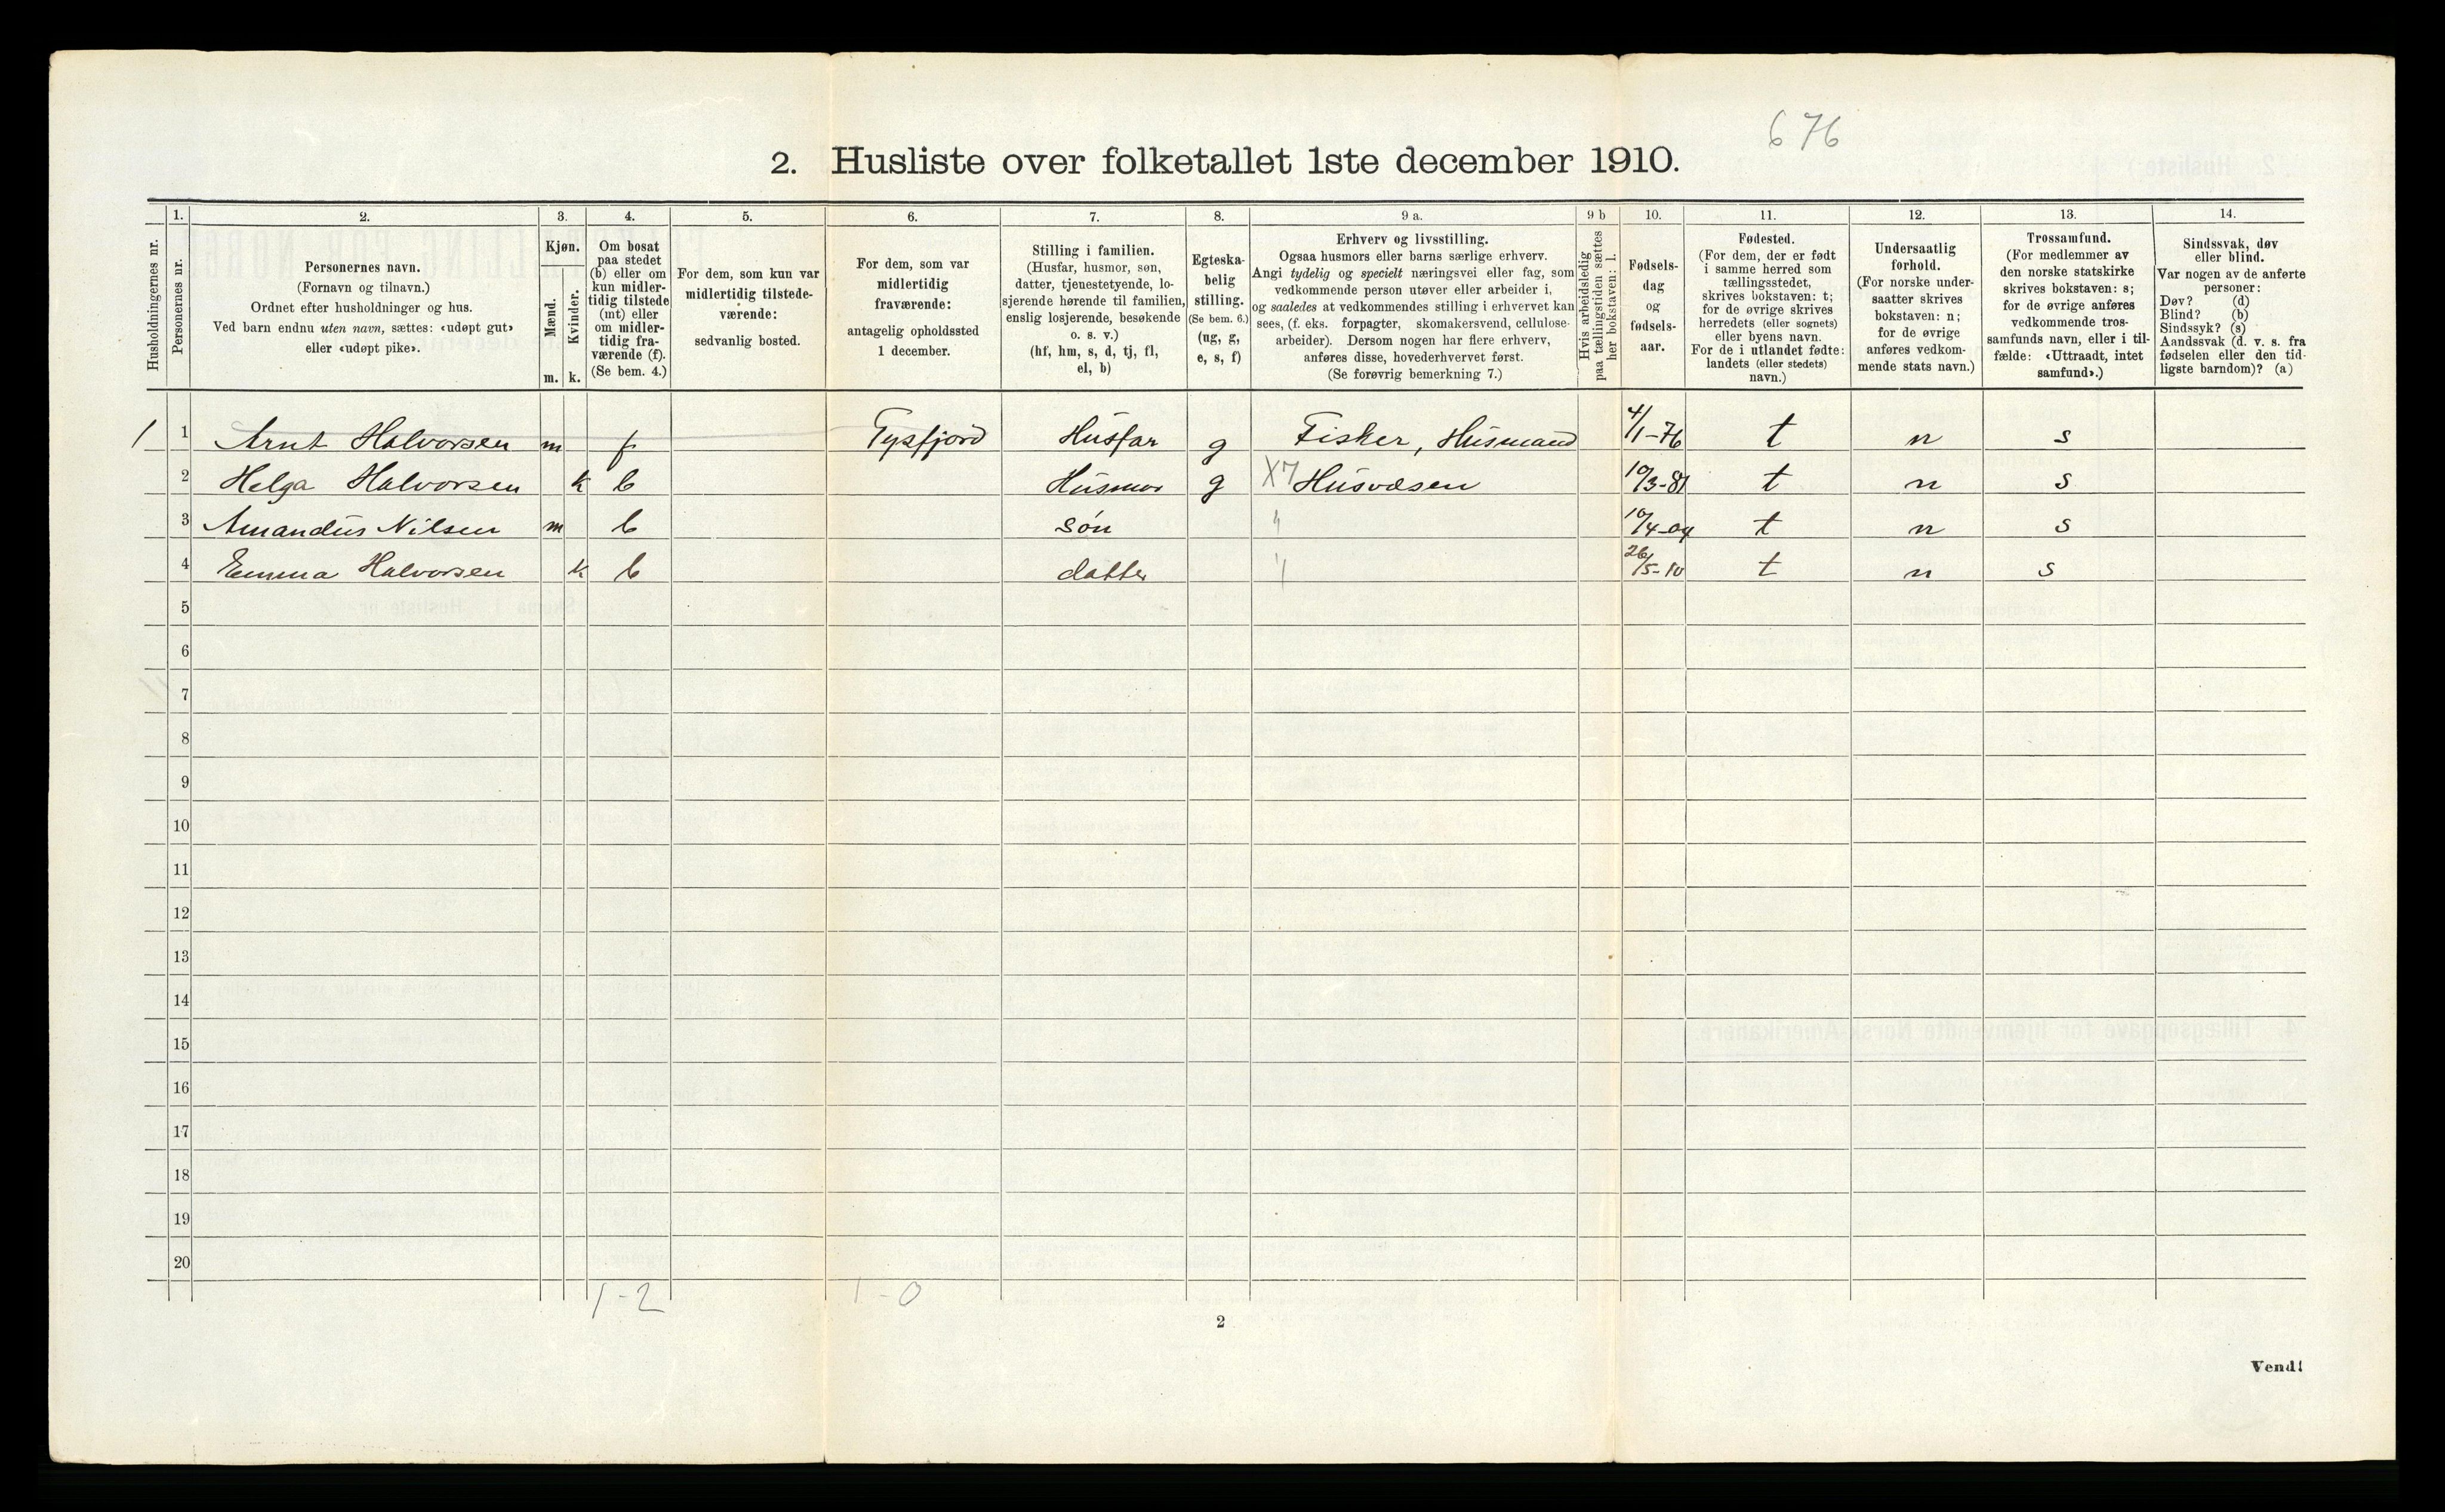 676
2. Husliste over folketallet 1ste december 1910.
Husholdningernes nr.
1. Personernes nr.
2. Personernes navn.
(Fornavn og tilnavn.)
Ordnet efter husholdninger og hus.
Ved barn endnu uten navn, sættes: «udøpt gut»
eller «udøpt pike».
3. Kjøn.
Mænd. m.
Kvinder. k.
4. Om bosat
paa stedet
(b) eller om
kun midler-
tidig tilstede
(mt) eller
om midler-
tidig fra-
værende (f).
(Se bem. 4.)
5. For dem, som kun var
midlertidig tilstede-
værende:
sedvanlig bosted.
6. For dem, som var
midlertidig
fraværende:
antagelig opholdssted
1 december.
7. Stilling i familien.
(Husfar, husmor, søn,
datter, tjenestetyende, lo-
sjerende hørende til familien,
enslig losjerende, besøkende
o. s. v.)
(hf, hm, s, d, tj, fl,
el, b)
8. Egteska-
belig
stilling.
(Se bem. 6.)
(ug, g,
e, s, f)
9 a. Erhverv og livsstilling.
Ogsaa husmors eller barns særlige erhverv.
Angi tydelig og specielt næringsvei eller fag, som
vedkommende person utøver eller arbeider i,
og saaledes at vedkommendes stilling i erhvervet kan
sees, (f. eks. forpagter, skomakersvend, cellulose-
arbeider). Dersom nogen har flere erhverv,
anføres disse, hovederhvervet først.
(Se forøvrig bemerkning 7.)
9 b Hvis arbeidsledig
paa tællingstiden sættes
her bokstaven: l.
10. Fødsels-
dag
og
fødsels-
aar.
11. Fødested.
(For dem, der er født
i samme herred som
tællingsstedet,
skrives bokstaven: t;
for de øvrige skrives
herredets (eller sognets)
eller byens navn.
For de i utlandet fødte:
landets (eller stedets)
navn.)
12. Undersaatlig
forhold.
(For norske under-
saatter skrives
bokstaven: n;
for de øvrige
anføres vedkom-
mende stats navn.)
13. Trossamfund.
(For medlemmer av
den norske statskirke
skrives bokstaven: s;
for de øvrige anføres
vedkommende tros-
samfunds navn, eller i til-
fælde: «Uttraadt, intet
samfund».)
14. Sindssvak, døv
eller blind.
Var nogen av de anførte
personer:
Døv? (d)
Blind? (b)
Sindssyk? (s)
Aandssvak (d. v. s. fra
fødselen eller den tid-
ligste barndom)? (a)
1 1 Arnt Halvorsen m f Tysfjord Husfar g Fisker, Husmand 4/1-76 t n s
2 Helga Halvorsen k b Husmor g X7 Husvæsen 10/3-81 t n s
3 Amandus Nilsen m b søn " 10/4-04 t n s
4 Emma Halvorsen k b datter " 26/5-10 t n s
5
6
7
8
9
10
11
12
13
14
15
16
17
18
19
20
1-2 1-0
2
Vend!